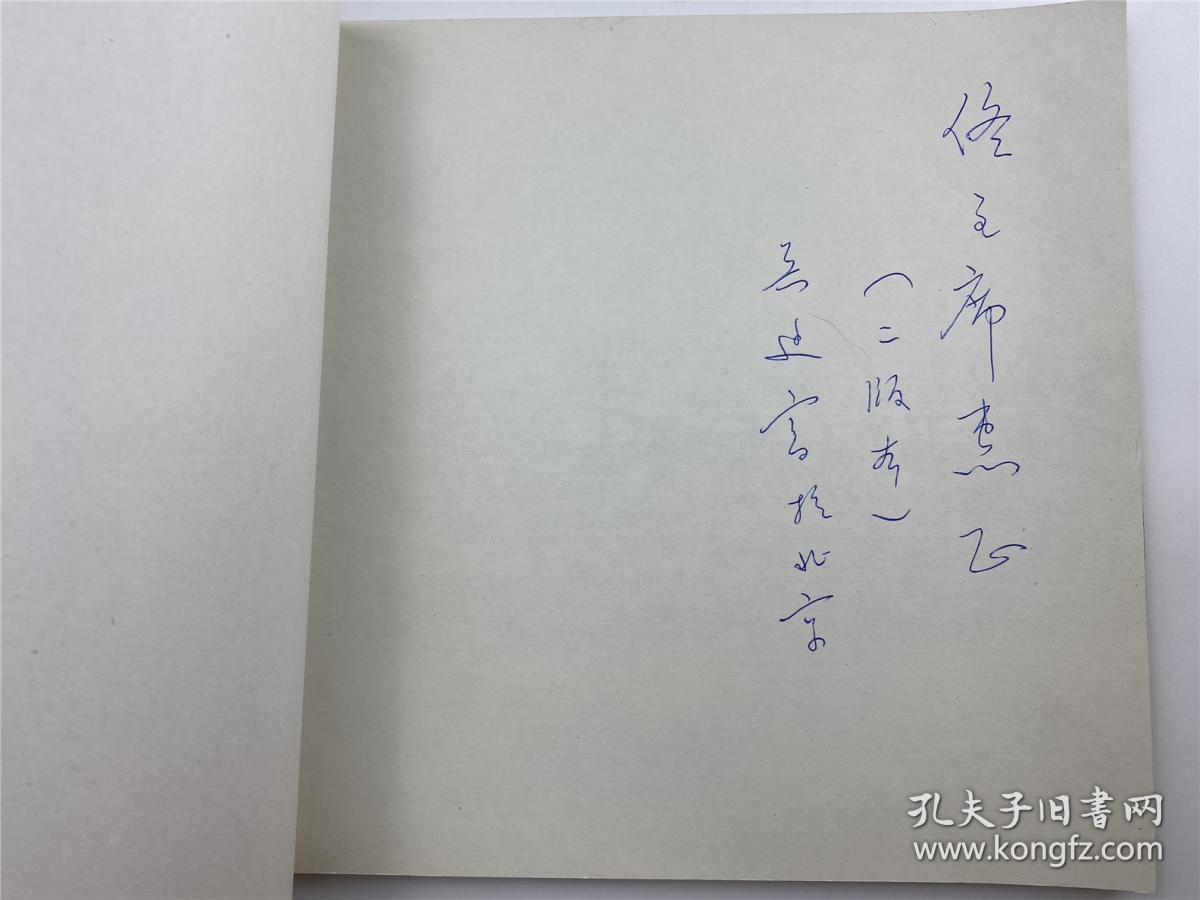 佟主席惠正
（二版本）
吴寄於北京
孔夫子旧書网
www.kongfz.com